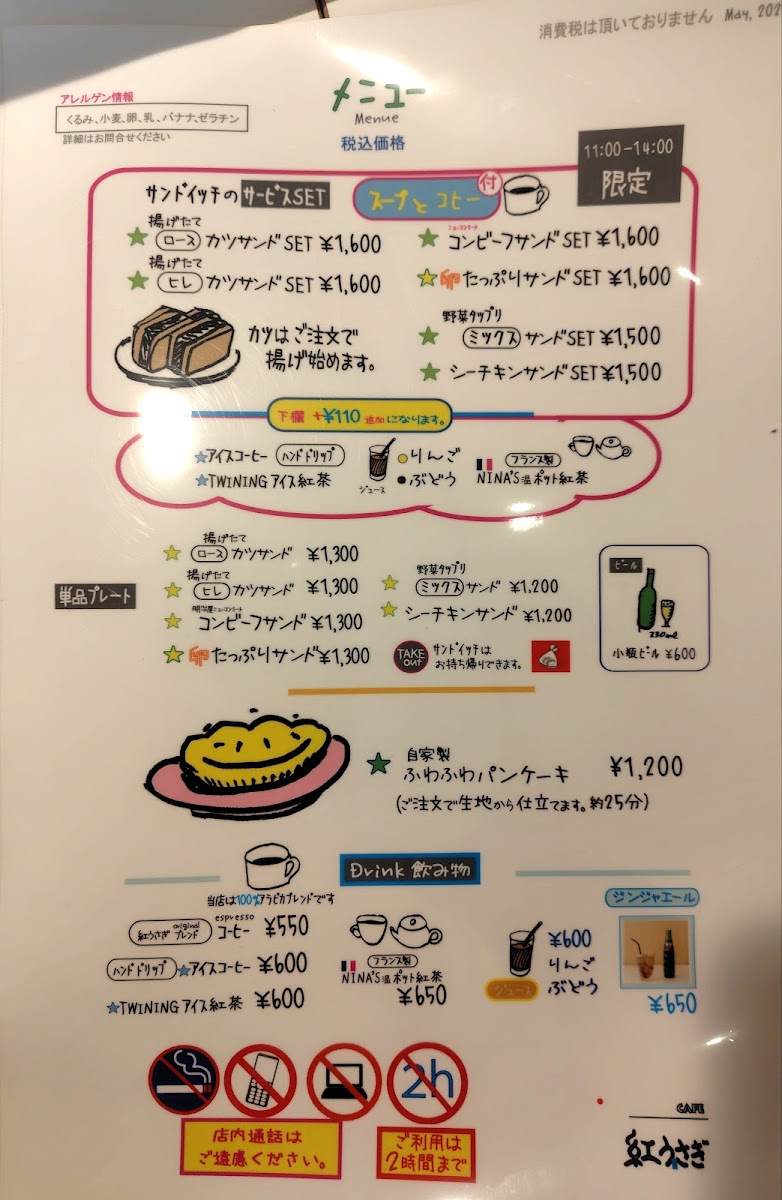 消費税は頂いておりません May, 202
アレルゲン情報
くるみ、小麦、卵、乳、バナナ、ゼラチン
詳細はお問合せください
メニュー
Menue
税込価格
11:00-14:00
限定
サンドイッチの サービスSET スープとコヒー 付
揚げたて
ロース カツサンドSET ¥1,600
揚げたて
ヒレ カツサンドSET ¥1,600
コンビーフサンドSET ¥1,600
卵たっぷりサンドSET ¥1,600
野菜タップリ
ミックス サンドSET ¥1,500
シーチキンサンドSET ¥1,500
カツはご注文で
揚げ始めます。
下欄 +¥110 追加になります。
アイスコーヒー ハンドドリップ
TWINING アイス紅茶
ジュース
りんご
ぶどう
フランス製
NINA'S 温 ポット紅茶
単品プレート
揚げたて
ロース カツサンド ¥1,300
揚げたて
ヒレ カツサンド ¥1,300
コンビーフサンド ¥1,300
卵たっぷりサンド ¥1,300
野菜タップリ
ミックス サンド ¥1,200
シーチキンサンド ¥1,200
TAKE out
サンドイッチは
お持ち帰りできます。
ビール
330ml
小瓶ビール ¥600
自家製
ふわふわパンケーキ ¥1,200
(ご注文で生地から仕立てます。約25分)
Drink 飲み物
当店は100%アラビカブレンドです
紅うさぎ original ブレンド espresso コーヒー ¥550
ハンドドリップ アイスコーヒー ¥600
TWINING アイス紅茶 ¥600
フランス製
NINA'S 温 ポット紅茶
¥650
¥600
りんご
ぶどう
ジュース
ジンジャエール
¥650
2h
店内通話は
ご遠慮ください。
ご利用は
2時間まで
CAFE
紅うさぎ